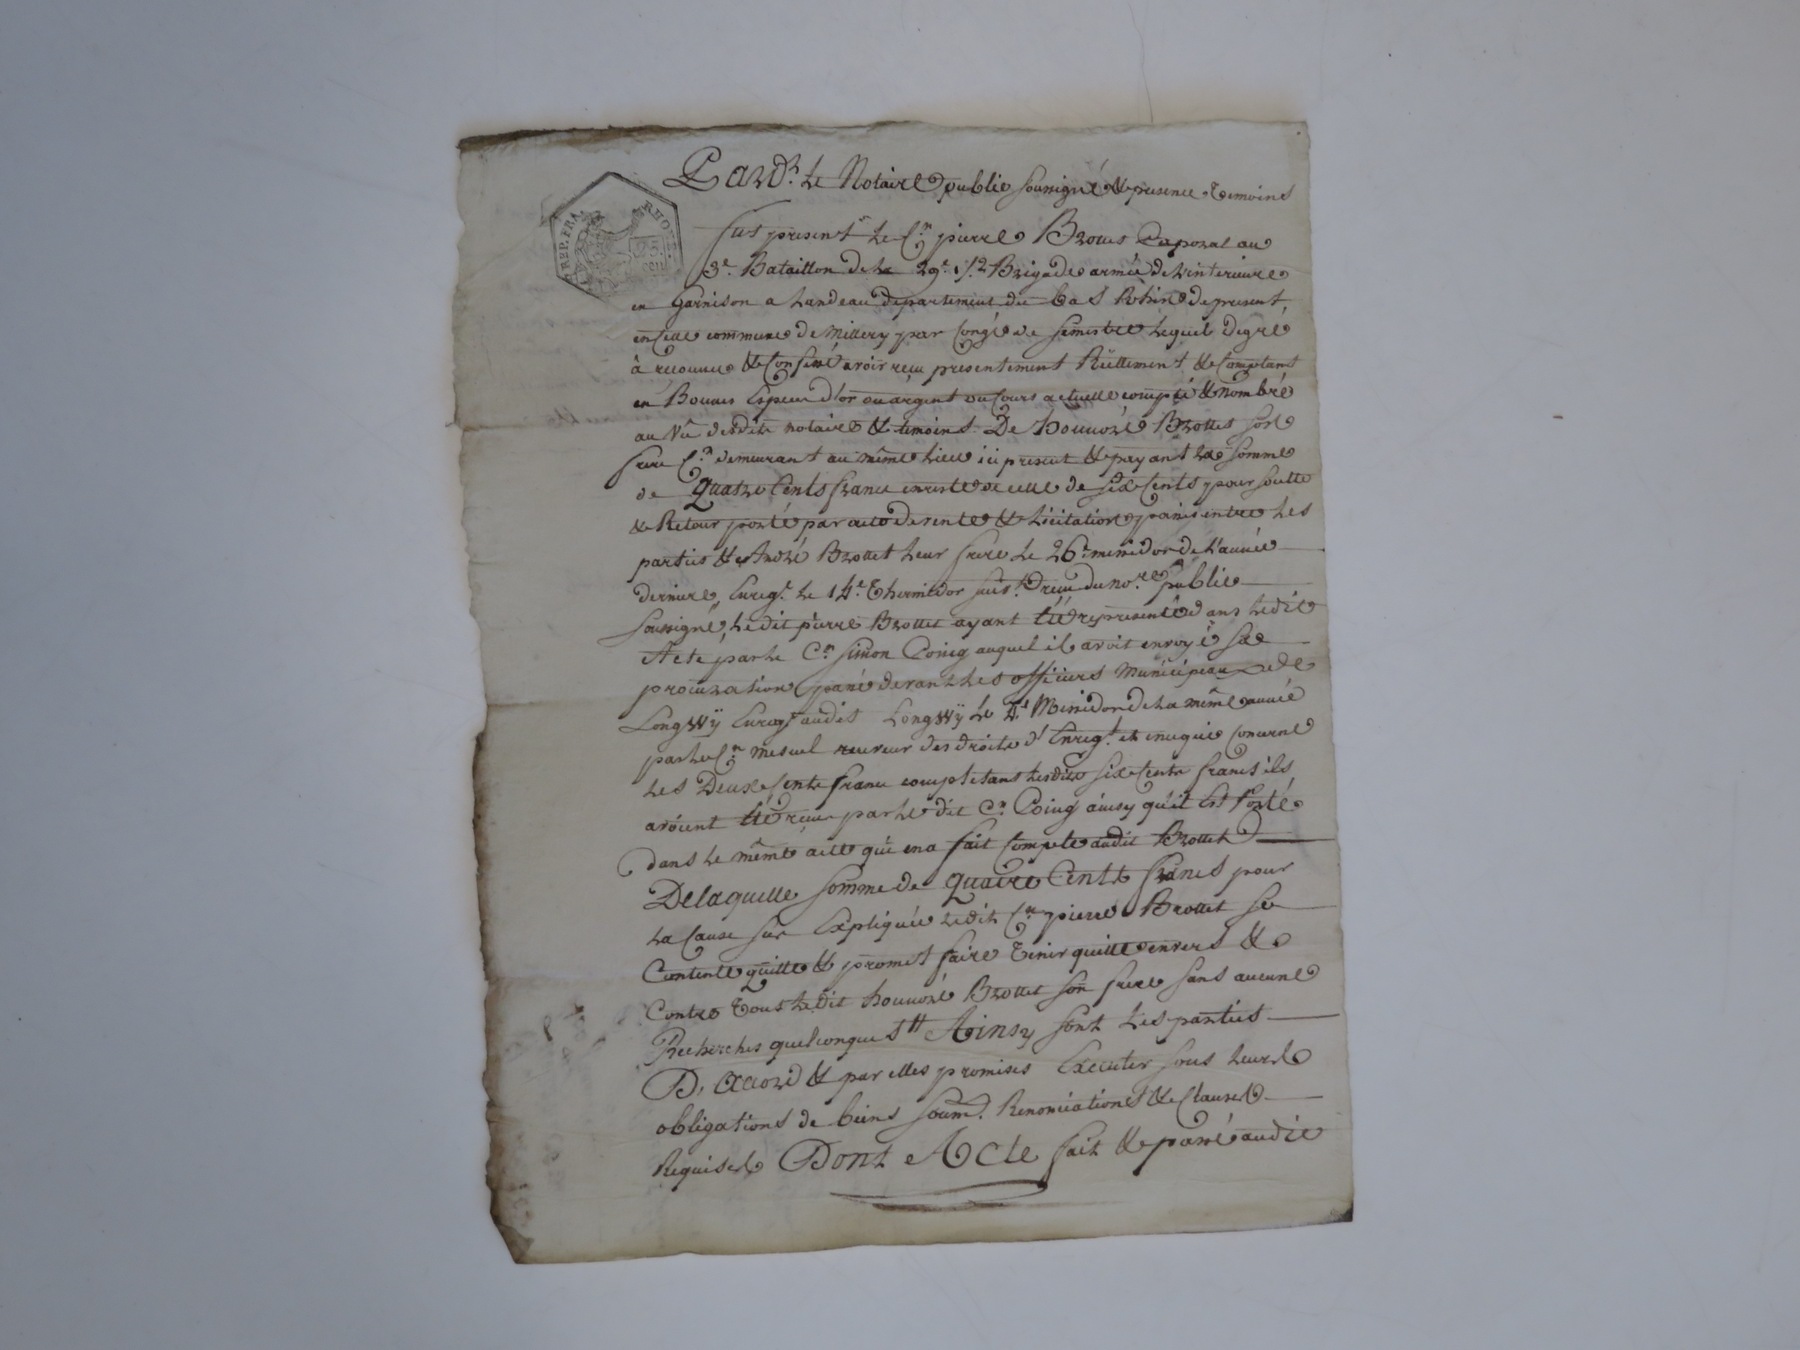 REP. FRA. RHONE
Pard.t Le Notaire public soussigné & presence Temoins
Fut present Le C.n pierre Brottet Caporal au
3.e Bataillon de La 29.e 1/2 Brigade armée de Linterieure
en Garnison a Landeau departement du bas Rhin de present
en Cette commune de Millery par Congé de semestre Lequel degré
à reconnu & Confessé avoir reçu presentement Réellement & Comptant
en Bonnes Especes d'or ou argent ou Cours actuelle compté & nombré
au Vu desdits notaire & temoins De honnoré Brottet son
frere C.n demeurant au même Lieu ici present & payant La somme
de Quatre Cents francs en reste de celle de six Cents pour soulte
& Retour porté par acte de vente & Licitation passé entre Les
parties & André Brottet Leur frere Le 26.e messidor de L'année
derniere, Enreg.t Le 14.e Thermidor suiv.t reçu du no.re public
soussigné, Ledit pierre Brottet ayant été representé dans Ledit
Acte par Le C.n simon Coing auquel il avoit envoyé sa
procuration passé devant Les officiers Municipeaux de
Longwÿ Enreg.t audit Longwÿ Le 4.e Messidor de La même année
par Le C.n mesnel receveur des droits d'Enreg.t et en ce qui Concerne
Les Deux Cents francs completans Lesdits six Cents francs ils
avoient été reçu par Le dit C.n Coing ainsy qu'il Est Porté
dans Le même acte qui en a fait Compte audit Brottet
De Laquelle somme de Quatre Cents francs pour
La Cause sus Expliquée Ledit C.n pierre Brottet se
Contente quitte & promet faire Tenir quitte envers &
Contre Tous Ledit honnoré Brottet son frere sans aucune
Recherches quelconques Ainsy sont Les parties
D'Accord & par elles promises Executer sous Leurs
obligations de biens soum.s Renonciations & Clauses
Requises Dont Acte fait & passé audit